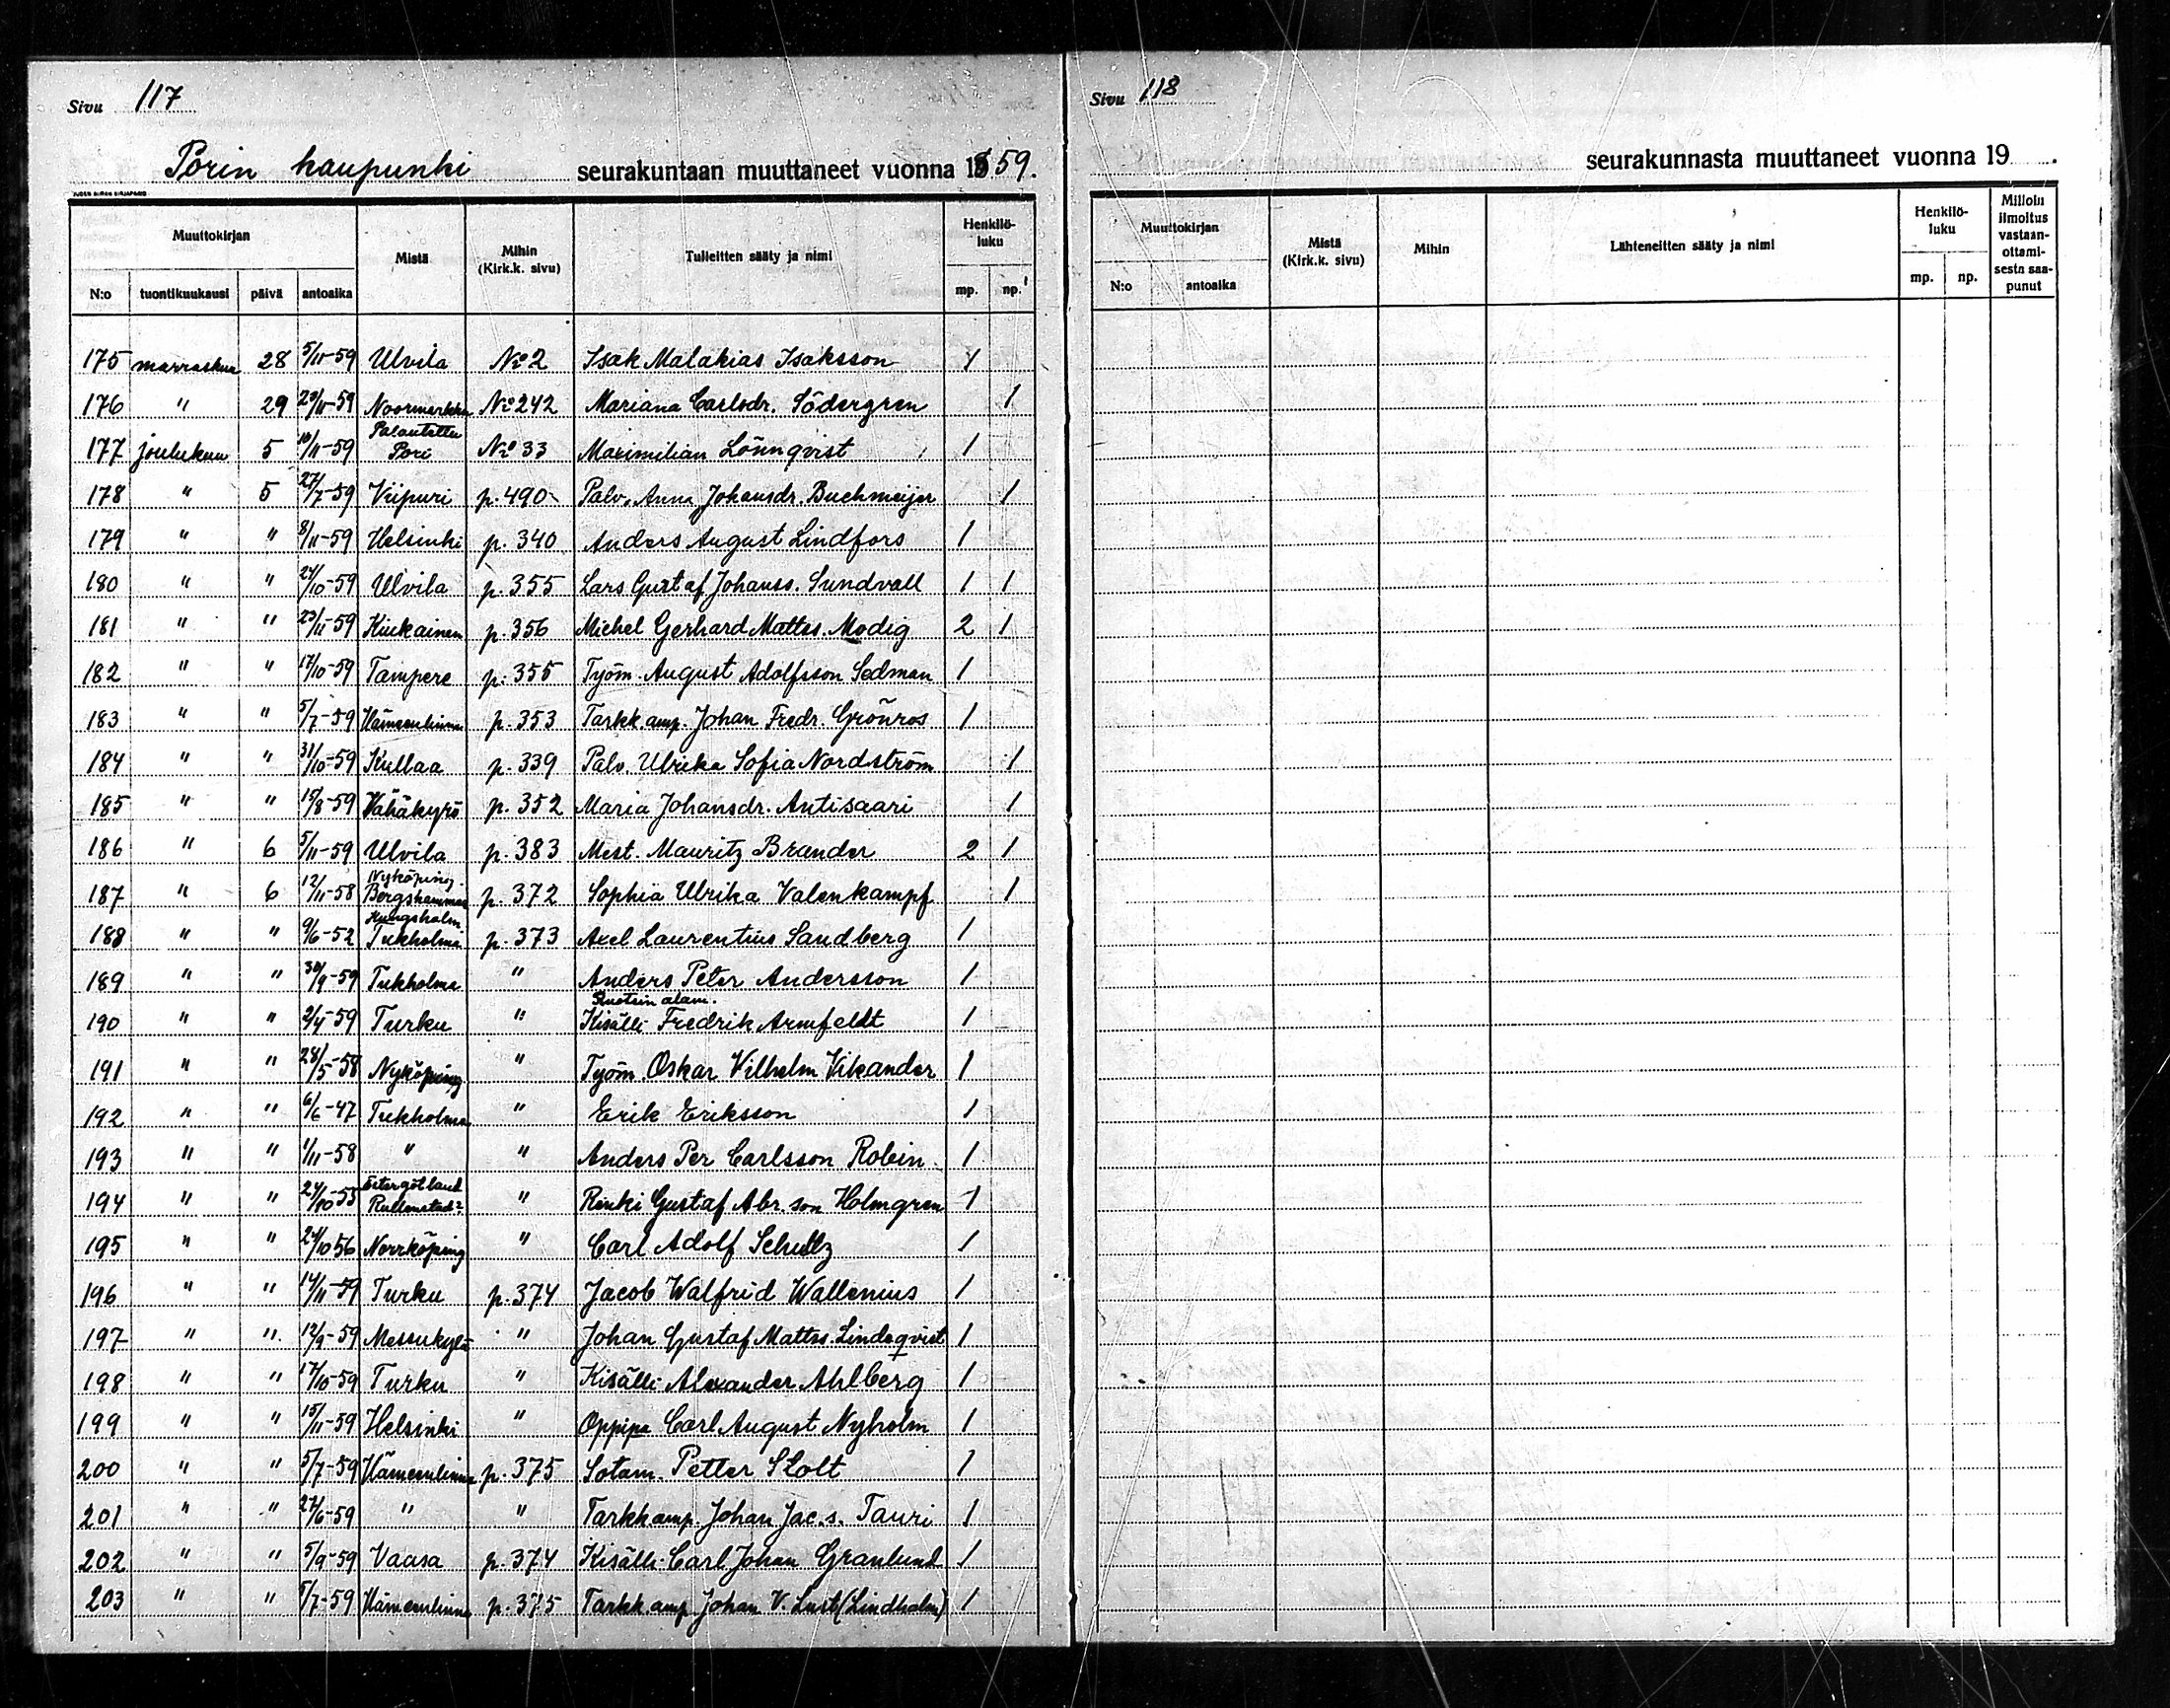 Sivu 117
Porin kaupunki seurakuntaan muuttaneet vuonna 1859.
Muuttokirjan Mistä Mihin (Kirk.k. sivu) Tulleitten sääty ja nimi Henkilö-luku
N:o tuontikuukausi päivä antoaika mp. np.
175 marraskuu 28 5/11-59 Ulvila No 2 Isak Malakias Isaksson 1
176 " 29 20/11-59 Noormarkku No 242 Mariana Carlsdr. Södergren 1
Palautettu
177 joulukuu 5 10/11-59 Pori No 33 Maximilian Lönnqvist 1
178 " 5 27/7-59 Viipuri p. 490 Palv. Anna Johansdr. Buchmeijer 1
179 " " 8/11-59 Helsinki p. 340 Anders August Lindfors 1
180 " " 24/10-59 Ulvila p. 355 Lars Gustaf Johanss. Sundvall 1 1
181 " " 23/11-59 Kiukainen p. 356 Michel Gerhard Mattss. Modig 2 1
182 " " 17/10-59 Tampere p. 355 Työm. August Adolfsson Sedman 1
183 " " 5/7-59 Hämeenlinna p. 353 Tarkk.amp. Johan Fredr. Grönros 1
184 " " 31/10-59 Kullaa p. 339 Palv. Ulrika Sofia Nordström 1
185 " " 15/8-59 Vähäkyrö p. 352 Maria Johansdr. Antisaari 1
186 " 6 5/11-59 Ulvila p. 383 Mest. Mauritz Brander 2 1
Nyköping
187 " 6 12/11-58 Bergshammar p. 372 Sophia Ulrika Valenkampf 1
Kungsholm
188 " " 9/6-52 Tukholma p. 373 Axel Laurentius Sandberg 1
189 " " 30/9-59 Tukholma " Anders Peter Andersson 1
Ruotsin alam.
190 " " 2/4-59 Turku " Kisälli Fredrik Armfeldt 1
191 " " 28/5-58 Nyköping " Työm. Oskar Vilhelm Vikander 1
192 " " 6/6-47 Tukholma " Erik Eriksson 1
193 " " 1/11-58 " " Anders Per Carlsson Robin 1
Östergötland
194 " " 24/10-55 " Renki Gustaf Abr.son Holmgren 1
195 " " 24/10 56 Norrköping " Carl Adolf Schultz 1
196 " " 14/11-59 Turku p. 374 Jacob Walfrid Wallenius 1
197 " " 12/9-59 Messukylä " Johan Gustaf Mattss. Lindeqvist 1
198 " " 17/10-59 Turku " Kisälli Alexander Ahlberg 1
199 " " 15/11-59 Helsinki " Oppipa Carl August Nyholm 1
200 " " 5/7-59 Hämeenlinna p. 375 Sotam. Petter Stolt 1
201 " " 27/6-59 " " Tarkkamp. Johan Jac.s. Tauri 1
202 " " 5/9-59 Vaasa p. 374 Kisälli Carl Johan Granlund 1
203 " " 5/7-59 Hämeenlinna p. 375 Tarkk.amp. Johan V. Lust (Lindholm) 1
Sivu 118
seurakunnasta muuttaneet vuonna 19 .
Muuttokirjan Mistä (Kirk.k. sivu) Mihin Lähteneitten sääty ja nimi Henkilö-luku Milloin ilmoitus vastaan-ottami-sesta saa-punut
N:o antoaika mp. np.